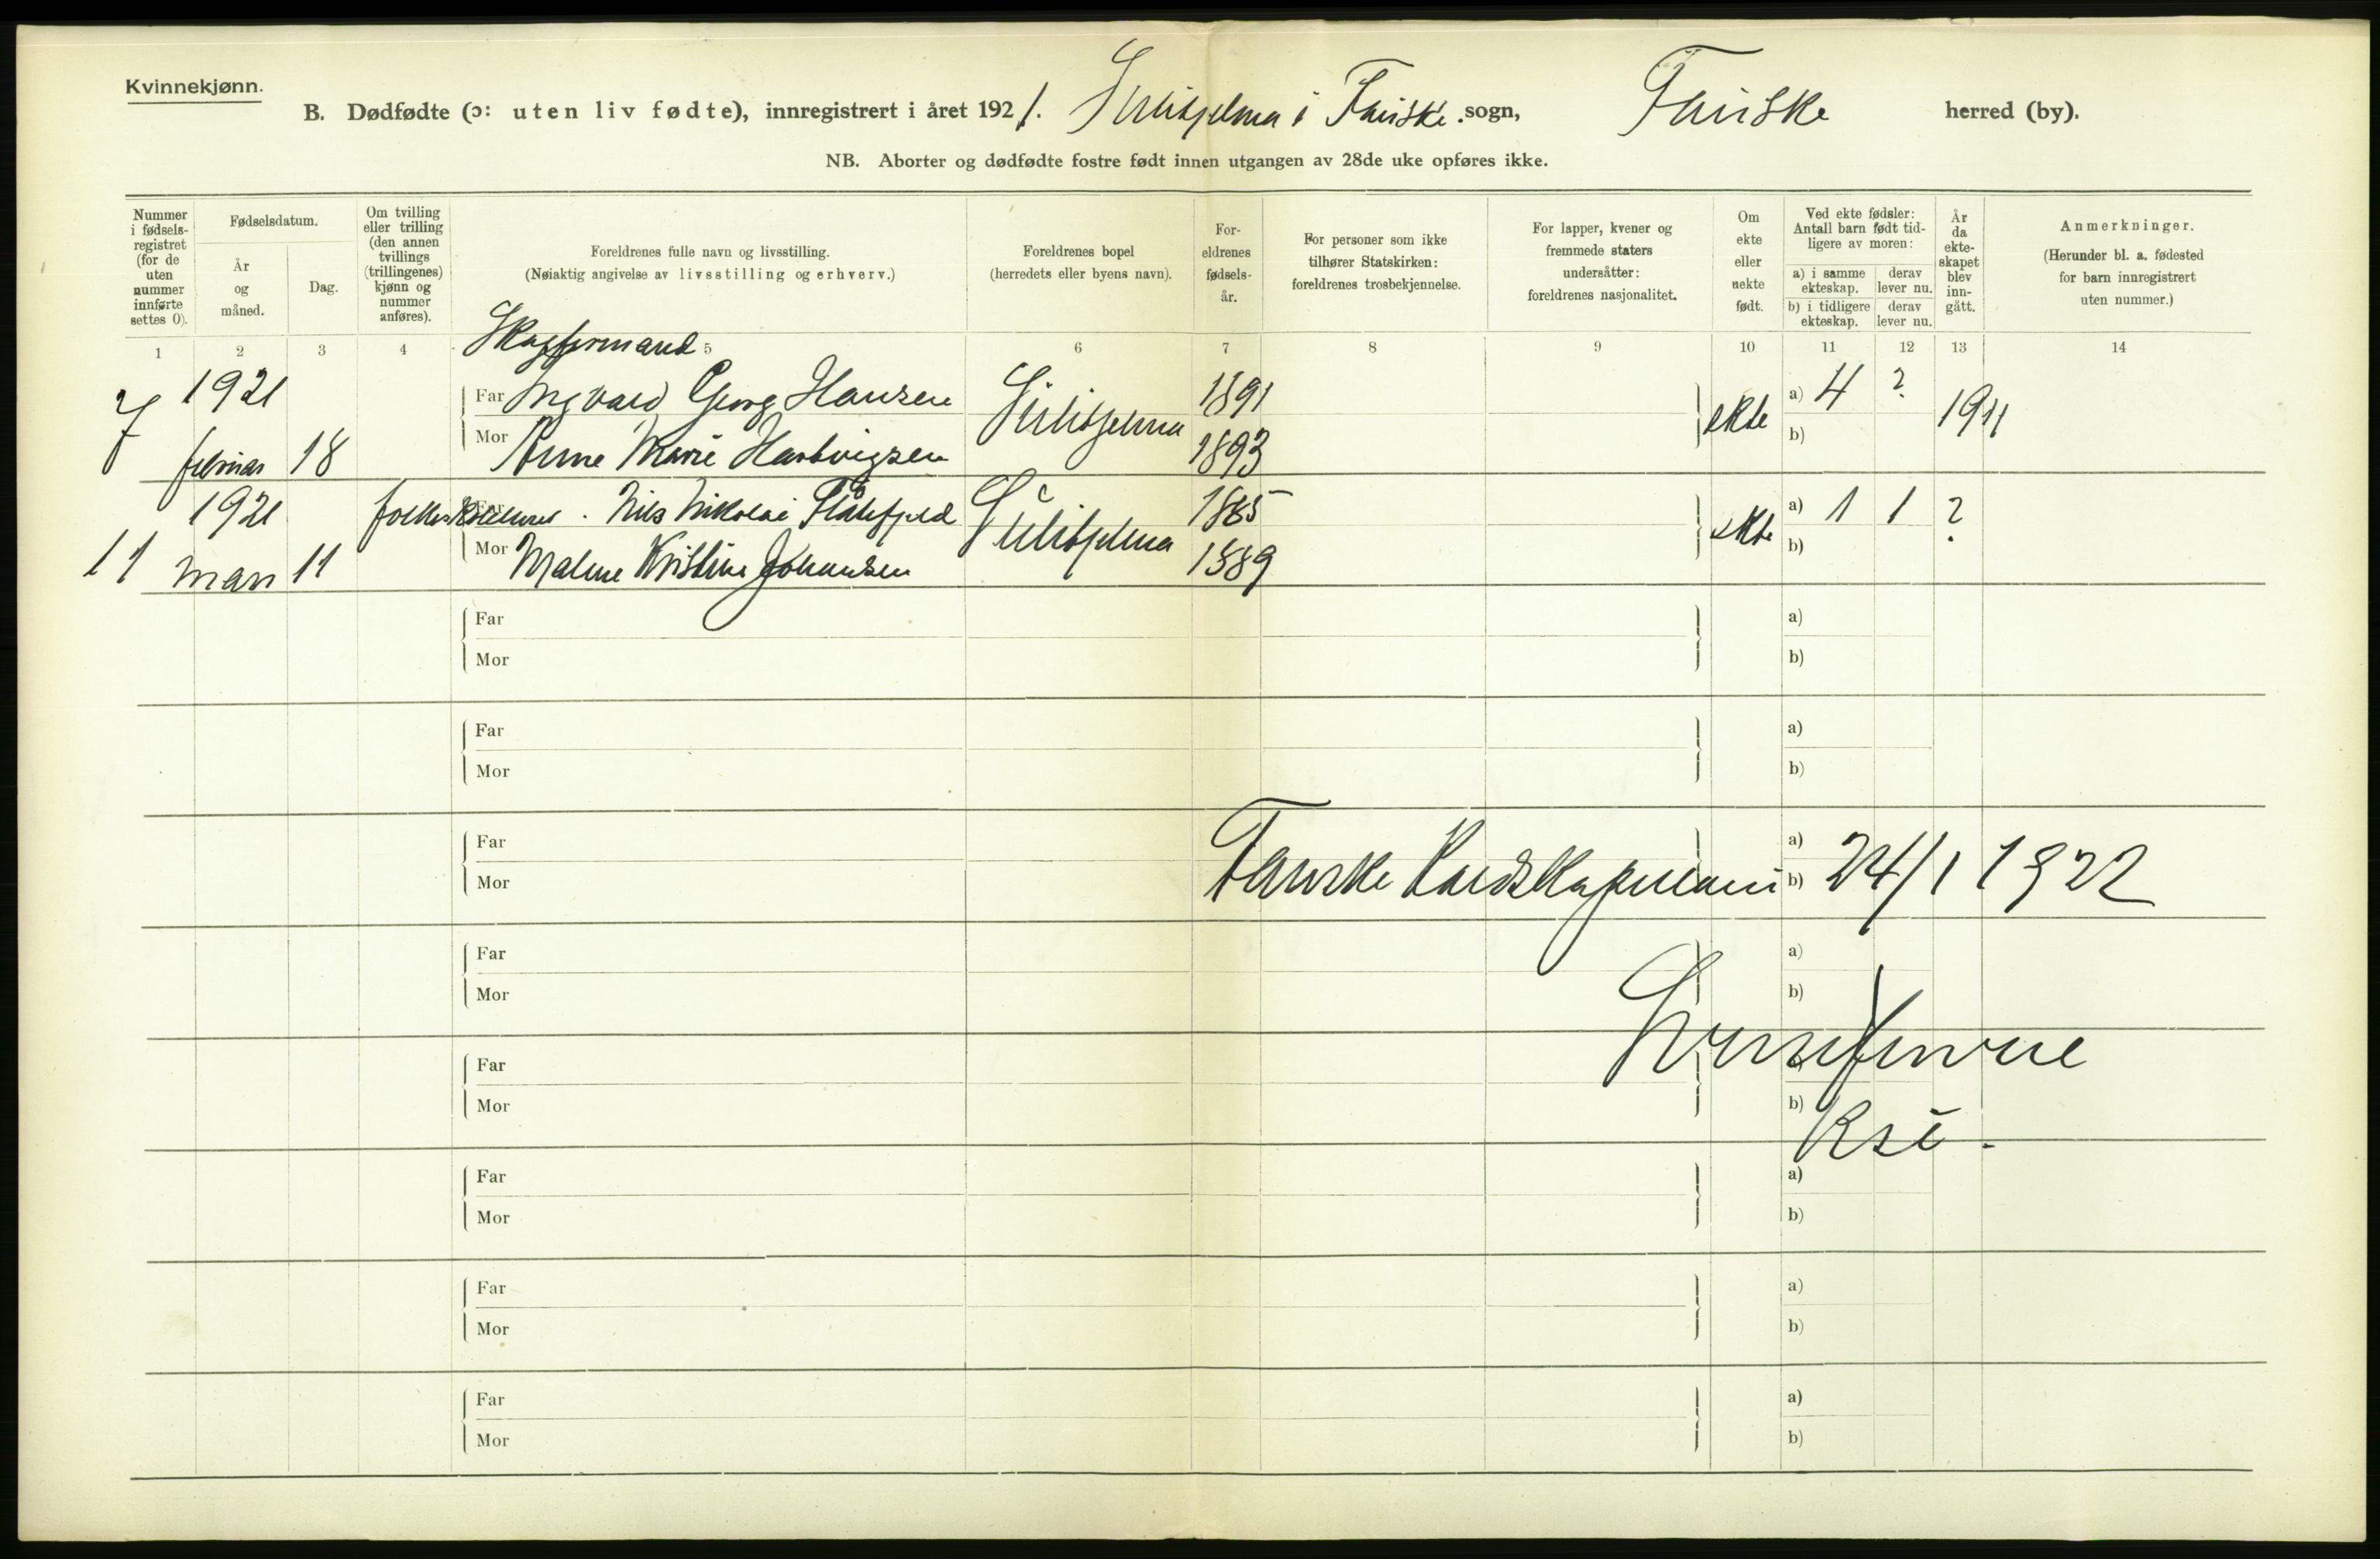 Kvinnekjønn.
B. Dødfødte (ɔ: uten liv fødte), innregistrert i året 1921. Sulitjelma i Fauske sogn, Fauske herred (by).
NB. Aborter og dødfødte fostre født innen utgangen av 28de uke opføres ikke.
Nummer i fødsels-registret (for de uten nummer innførte settes 0).
Fødselsdatum.
År og måned.
Dag.
Om tvilling eller trilling (den annen tvillings (trillingenes) kjønn og nummer anføres).
Foreldrenes fulle navn og livsstilling.
(Nøiaktig angivelse av livsstilling og erhverv.)
Foreldrenes bopel
(herredets eller byens navn).
For-eldrenes fødsels-år.
For personer som ikke tilhører Statskirken: foreldrenes trosbekjennelse.
For lapper, kvener og fremmede staters undersåtter: foreldrenes nasjonalitet.
Om ekte eller uekte født.
Ved ekte fødsler: Antall barn født tid-ligere av moren:
a) i samme ekteskap.
derav lever nu.
b) i tidligere ekteskap.
derav lever nu.
År da ekte-skapet blev inn-gått.
Anmerkninger.
(Herunder bl. a. fødested for barn innregistrert uten nummer.)
1 2 3 4 5 6 7 8 9 10 11 12 13 14
7 1921 februar 18
Far Ingvald Georg Hansen Sulitjelma 1891 ekte a) 4 ? 1911
Mor Anne Marie Hartvigsen 1893 b)
11 1921 mars 11
Far Nils Nikolai Flatefjeld Sulitjelma 1885 ekte a) 1 1 ?
Mor Maline Kristine Johansen 1889 b)
Far a)
Mor b)
Far a)
Mor b)
Far a)
Mor b)
Fauske 24/1 1922
Far a)
Mor b)
Far
Mor b)
Far a)
Mor b)
Far a)
Mor b)
Far a)
Mor b)